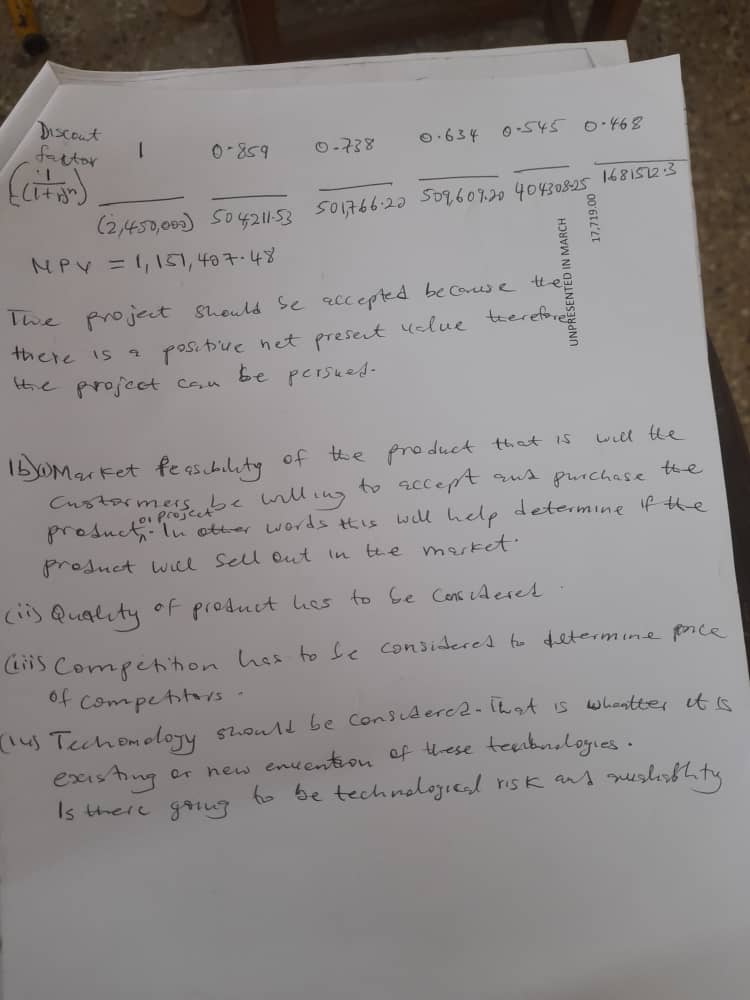 Discout
factor 1 0.859 0.738 0.634 0.545 0.468
(1/(1+r)n)
(2,450,000) 504,211.53 501,766.20 509,609.20 404308.25 1681512.3
NPV = 1,151,407.48
UNPRESENTED IN MARCH 17,719.00
The project should be accepted because the
there is a positive net present value therefore
the project can be persued.
1b)(i) Market feasibility of the product that is will the
Custormers be willing to accept and purchase the
product or project. In other words this will help determine if the
product will sell out in the market.
(ii) Quality of product has to be considered.
(iii) Competition has to be considered to determine price
of competitors.
(iv) Techomology should be considered. That is wheatter it is
existing or new envention of these technologies.
Is there going to be technological risk and